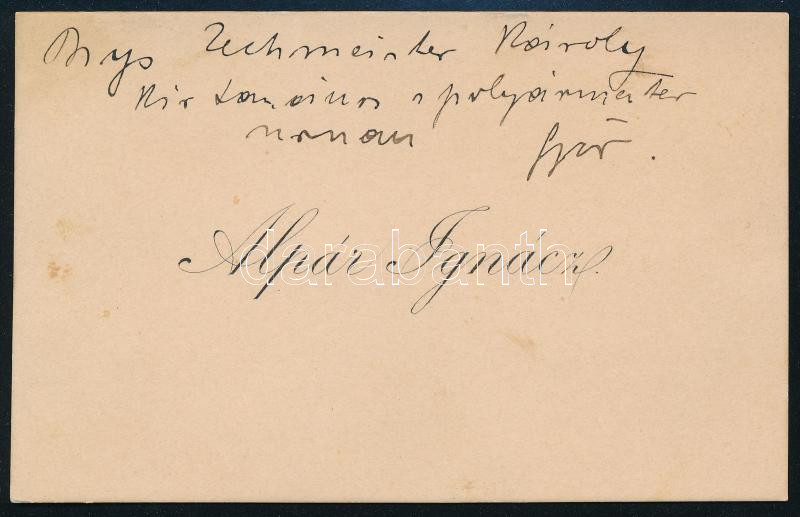 Ngs Zechmeister Károly
kir tanácsos s polgármester
urnak Győr.
Alpár Ignácz.
darabanth